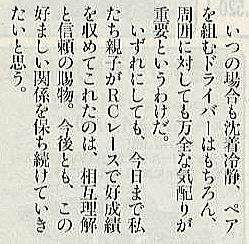 いつの場合も沈着冷静、ペア
を組むドライバーはもちろん、
周囲に対しても万全な気配りが
重要というわけだ。
いずれにしても、今日まで私
たち親子がRCレースで好成績
を収めてこれたのは、相互理解
と信頼の賜物。今後とも、この
好ましい関係を保ち続けていき
たいと思う。